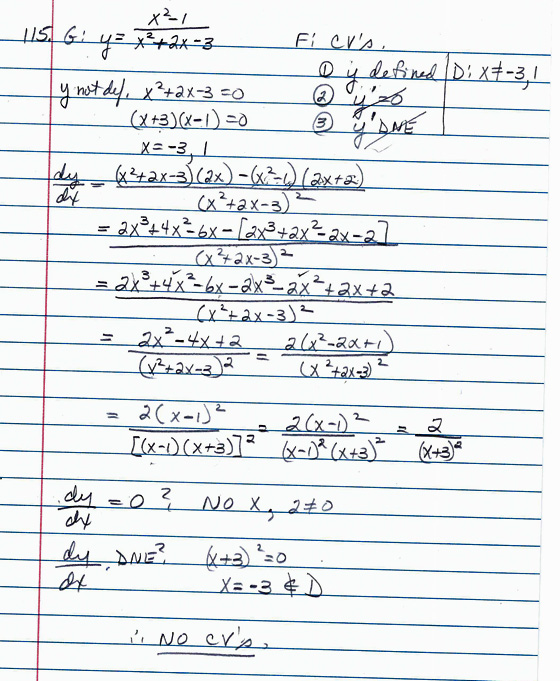 115. G: y = (x²-1)/(x²+2x-3) F: CV's.
① y defined | D: x≠-3, 1
y not def. x²+2x-3=0 ② y'=0
(x+3)(x-1)=0 ③ y' DNE
x=-3, 1
dy/dx = ((x²+2x-3)(2x) - (x²-1)(2x+2))/(x²+2x-3)²
= (2x³+4x²-6x-[2x³+2x²-2x-2])/(x²+2x-3)²
= (2x³+4x²-6x-2x³-2x²+2x+2)/(x²+2x-3)²
= (2x²-4x+2)/(x²+2x-3)² = (2(x²-2x+1))/(x²+2x-3)²
= (2(x-1)²)/([(x-1)(x+3)]²) = (2(x-1)²)/((x-1)²(x+3)²) = 2/(x+3)²
dy/dx = 0? NO X, 2≠0
dy/dx DNE? (x+3)²=0
x=-3 ∉ D
∴ NO CV's.